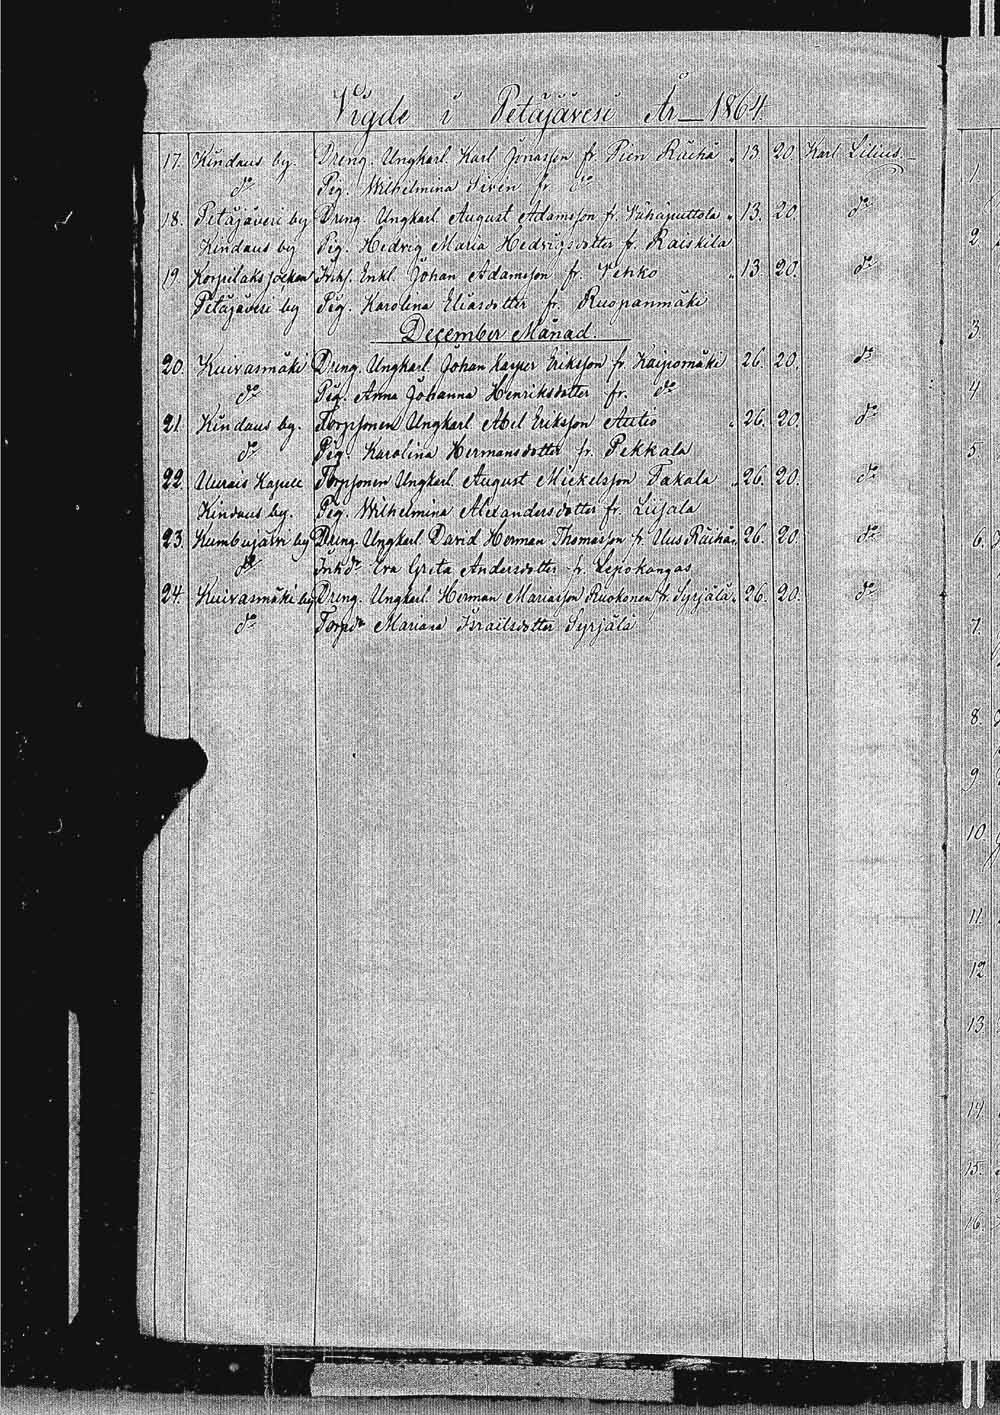 Vigde i Petäjävesi År 1864.
17. Kindaus by. Dreng. Ungkarl. Karl Jonasson fr. Pien Räihä " 13. 20. Karl Lilius
do Pig. Wilhelmina Siren fr. do
18. Petäjävesi by Dreng. Ungkarl. August Adamsson fr. Vähäputtola " 13. 20. do
Kindaus by Pig. Hedvig Maria Hedvigsdotter fr. Raiskila
19. Korpilaks socken Enkl. Johan Adamsson fr. Vehko " 13 20. do
Petäjävesi by Pig. Karolina Eliasdotter fr. Ruopanmäki
December Månad.
20. Kuivasmäki Dreng. Ungkarl. Johan Kasper Eriksson fr. Kaipomäki 26. 20. do
do Pig. Anna Johanna Henriksdotter fr. do
21. Kindaus by. Torpsonen Ungkarl Abel Eriksson Autio " 26. 20. do
do Pig. Karolina Hermansdotter fr. Pekkala
22. Uurais Kapell Torpsonen Ungkarl. August Mickelsson Takala " 26. 20. do
Kindaus by. Pig. Wilhelmina Alexandersdotter fr. Liisala
23. Kumbujärvi by Dreng. Ungkarl David Herman Thomasson fr. Uus Räihä " 26. 20. do
do Inhdr Eva Greta Andersdotter fr. Lepokangas
24. Kuivasmäki by Dreng. Ungkarl. Herman Mariasson Ruokonen fr. Syrjälä " 26. 20. do
do Torpdr Mariana Israelsdotter Syrjälä
1.
2.
3.
4
5
6.
7.
8.
9
10
11.
12
13
14.
15.
16.